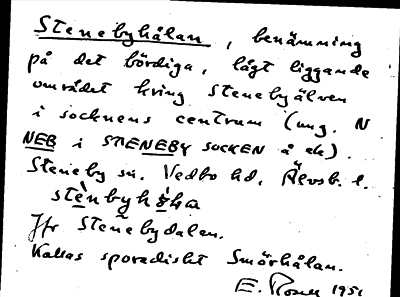 Stenebyhålan, benämning
på det bördiga, lågt liggande
området kring Stenebyälven
i socknens centrum (ung. N
NEB i STENEBY SOCKEN å ek).
Steneby sn. Vedbo hd. Älvsb. l.
Jfr Stenebydalen.
Kallas sporadiskt Smörhålan.
E. Rosell 1951